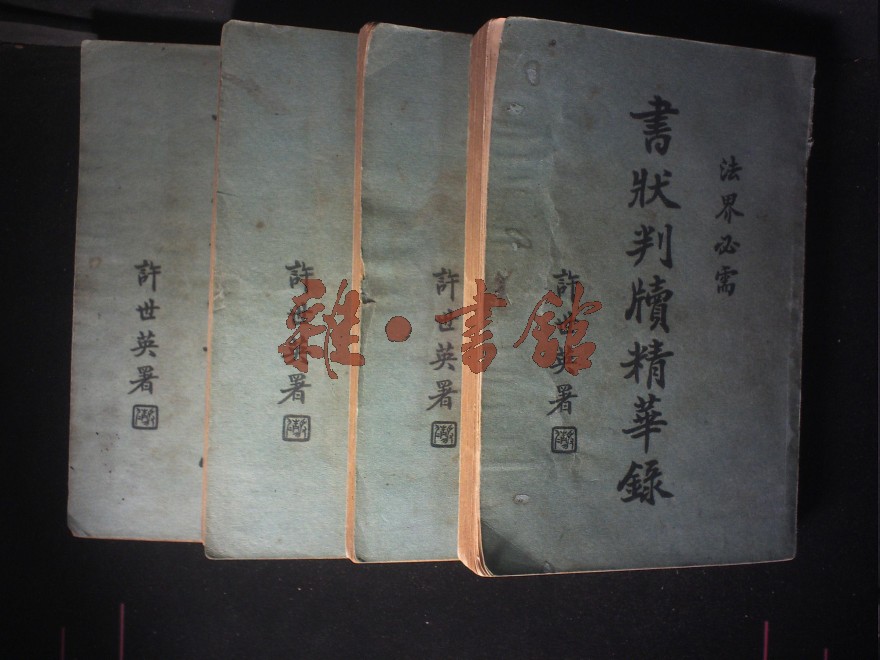 法界必需
書狀判牘精華錄
許世英署
許世英署
許世英署
許世英署
雜·書館